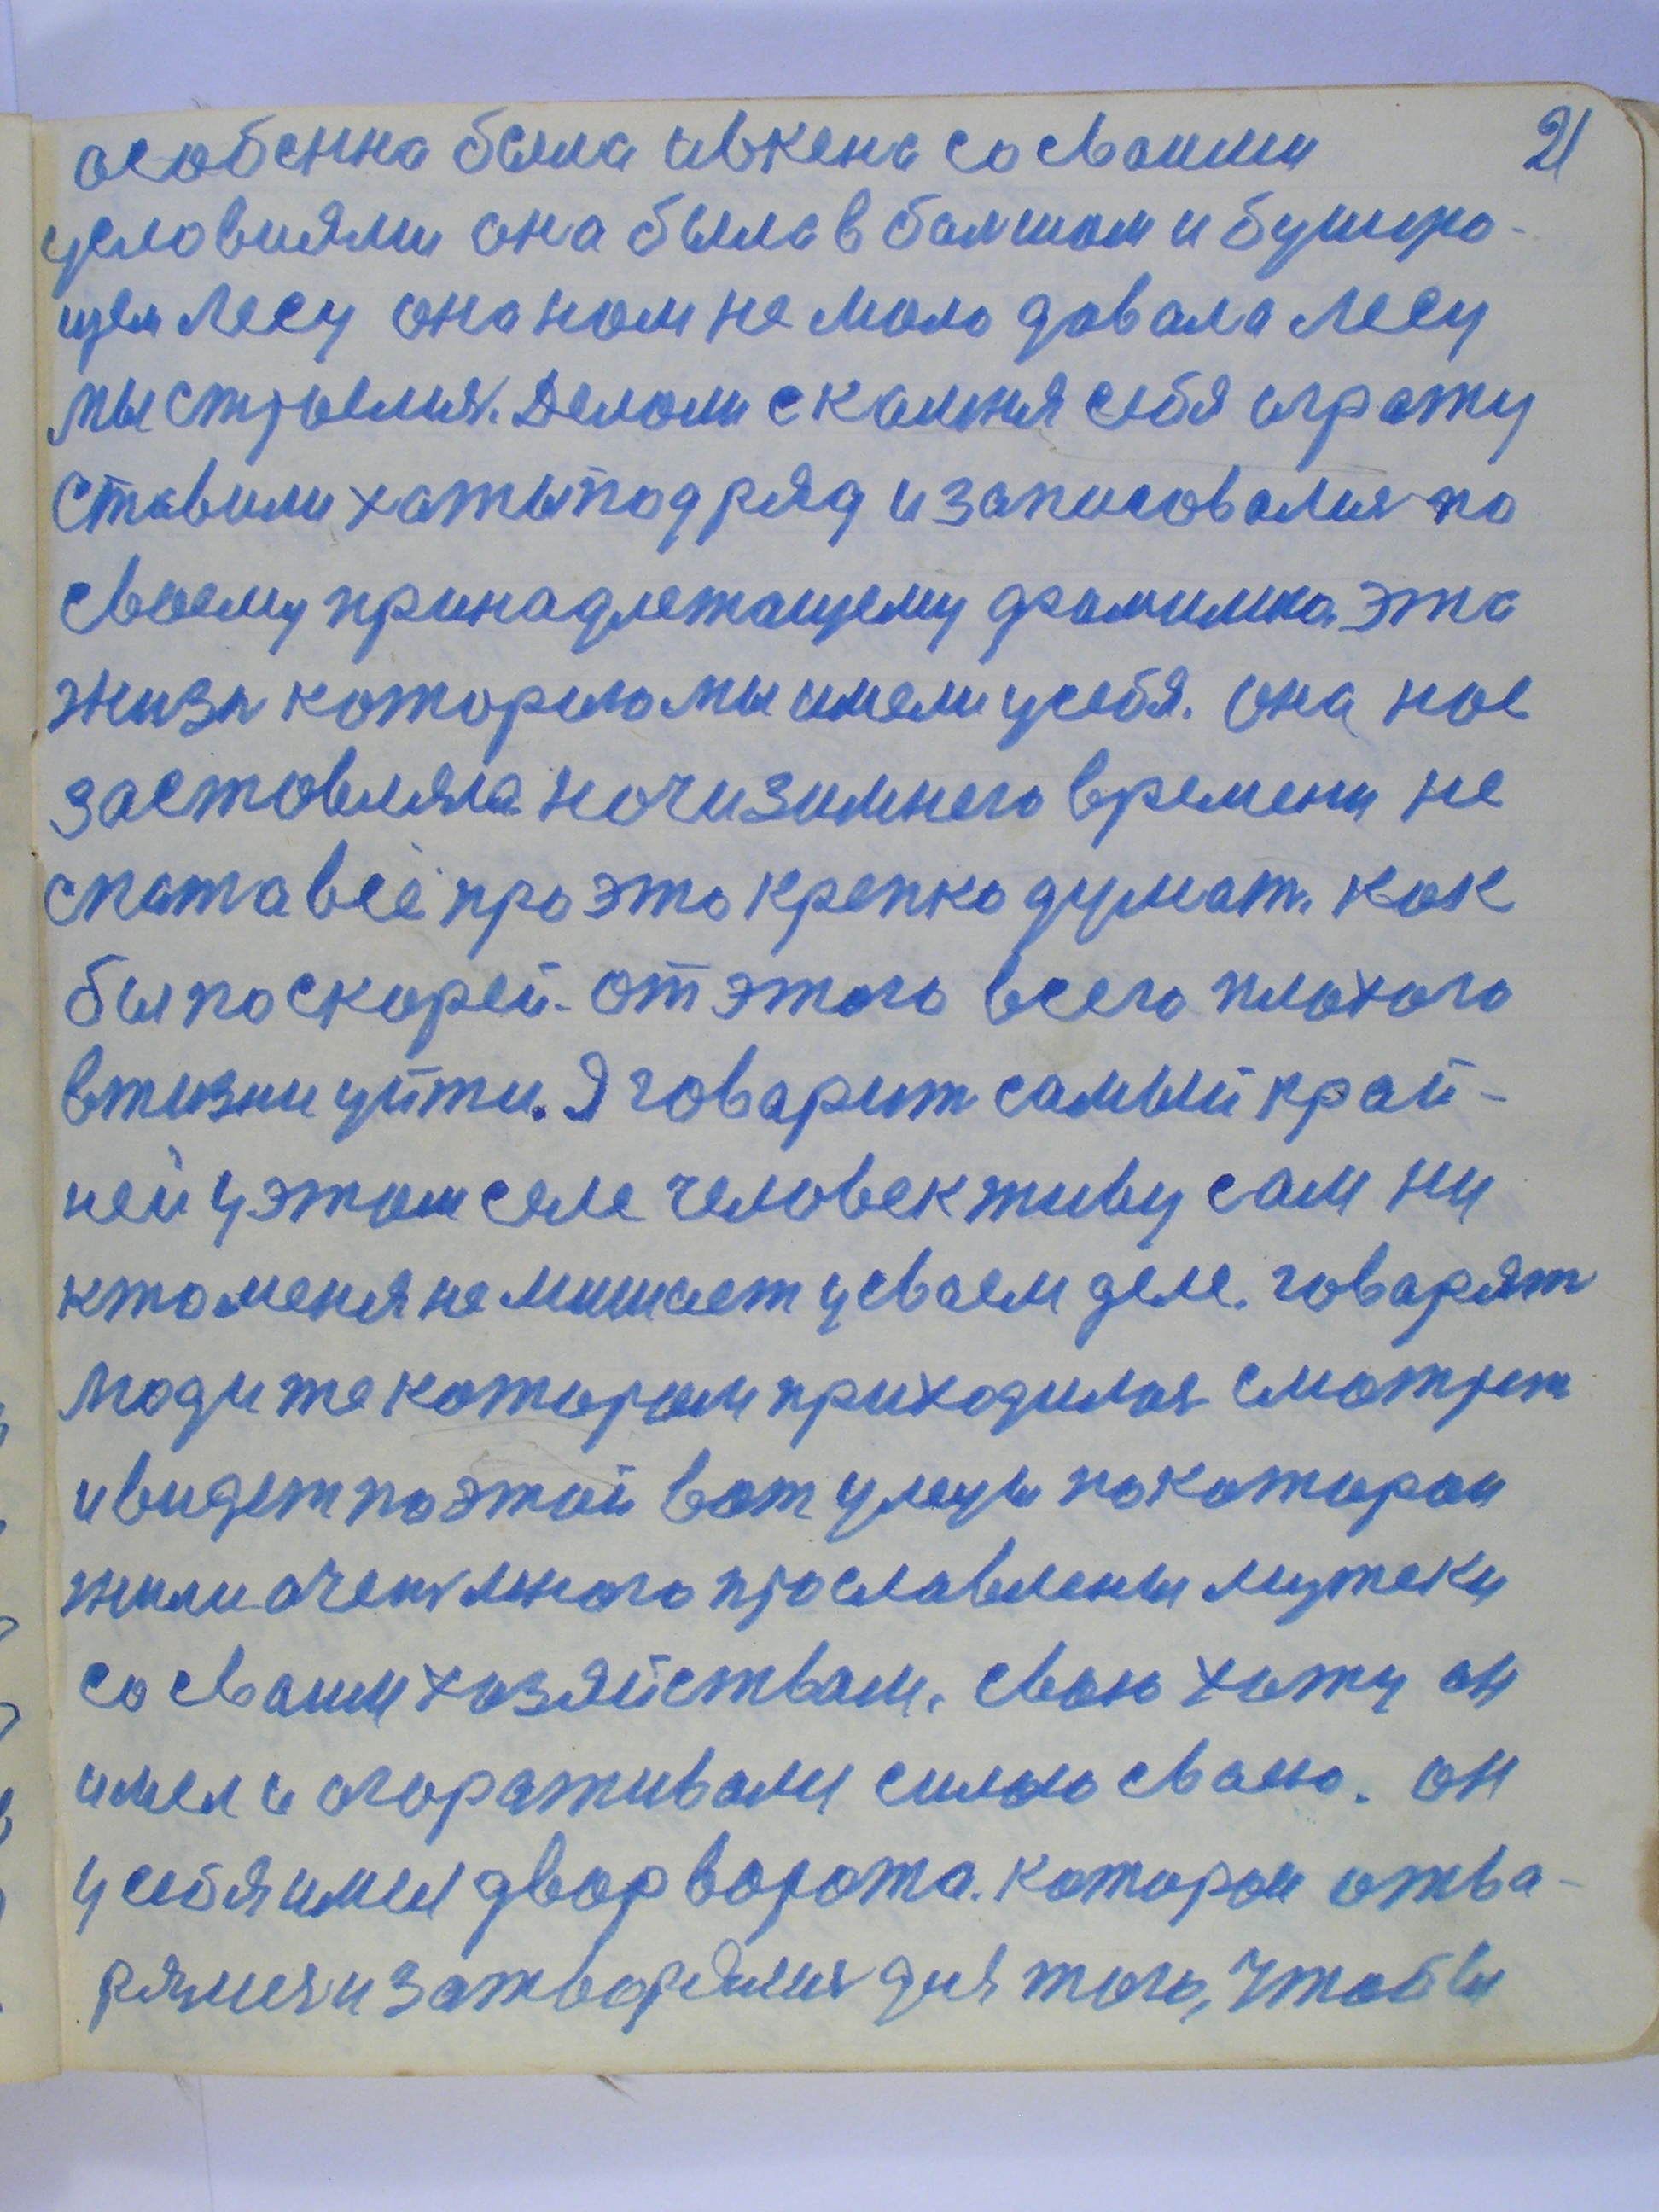 21
особенна была ивкена со сваими
условиями она была в балшом и бушую-
щем лесу она нам не мало давала лесу
мы строелися. Делоли с камня себя аграту
ставили хаты подряд и записовалися по
своему принадлетащему фамилию. эта
жизн которую мы имели у себя. она нас
заставляла ночи зимнего времени не
спат а всё про это крепко думат. как
бы поскорей. от этого всего плохого
в тизни уйти. Я говарит самый край-
ней у этом селе человек тиву сам ни
кто меня не мишает у сваем деле. говарят
люди те которои приходилося смотрет
и видет по этой вот улецы по которои
жили очень много прославлены мутеки
со сваим хозяйствам. сваю хату он
имел и агоративали силою сваею. он
у себя имел двор ворота. каторои отва-
рялися и затворялися для того, чтобы